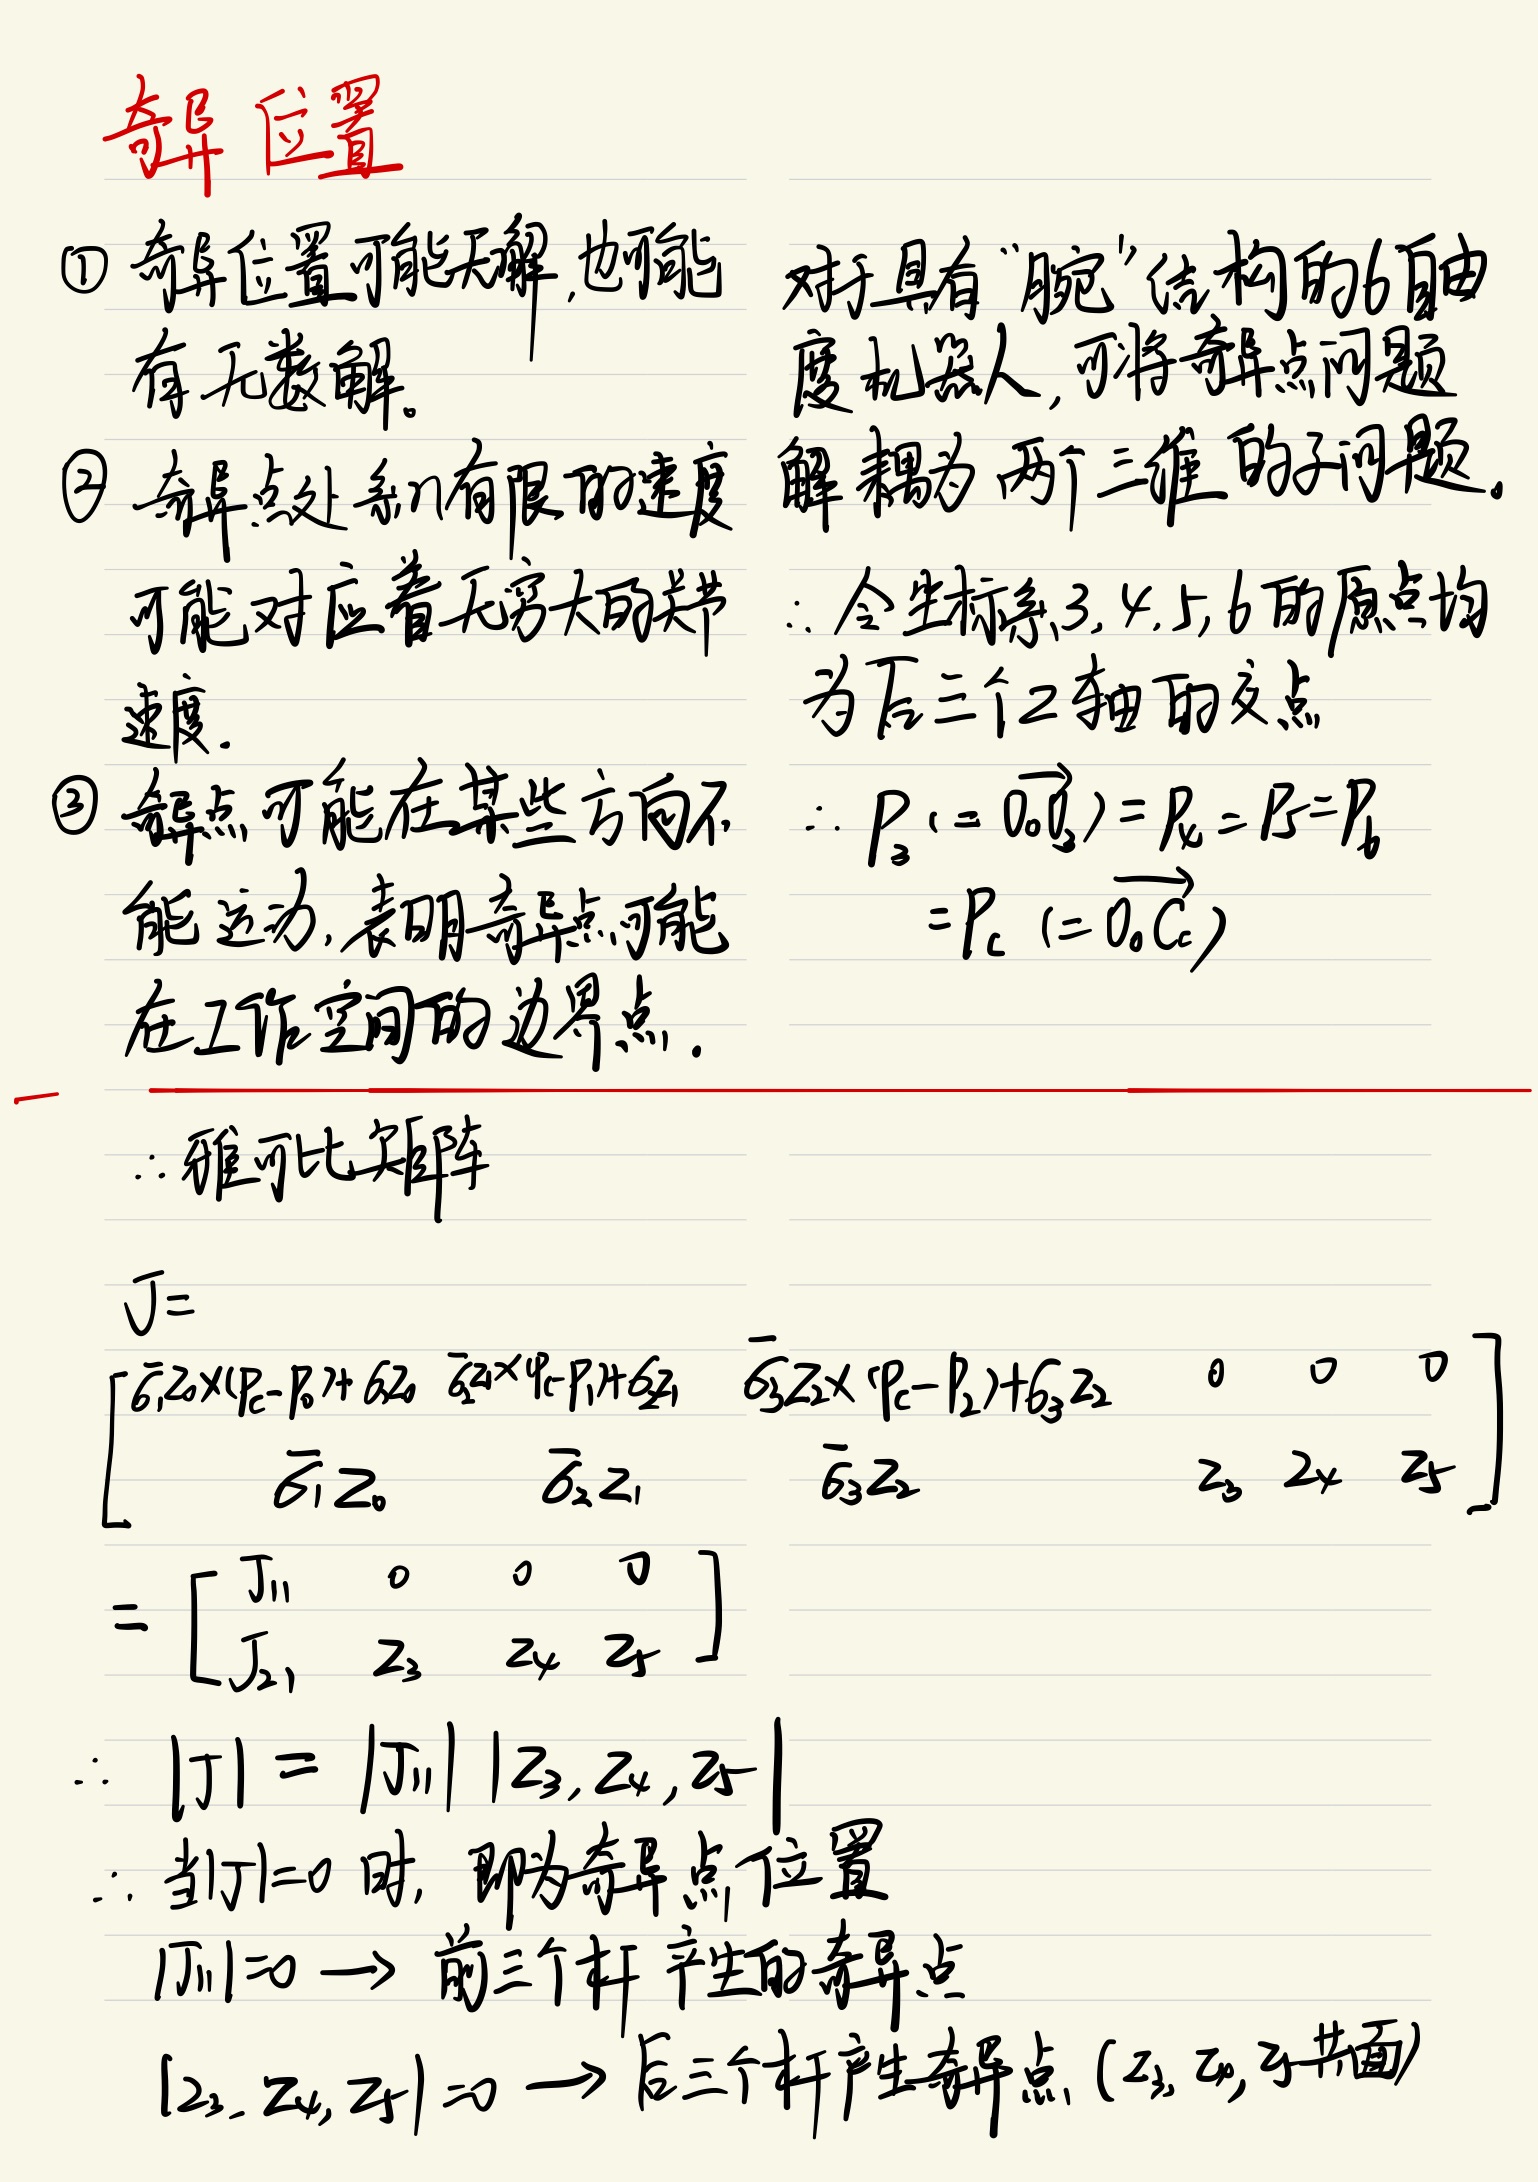 奇异位置
① 奇异位置可能无解,也可能
有无数解。
② 奇异点处系n有限的速度
可能对应着无穷大的关节
速度.
③ 奇异点可能在某些方向不
能运动,表明奇异点可能
在工作空间的边界点.
对于具有“腕”结构的6自由
度机器人,可将奇异点问题
解耦为两个三维的子问题。
∴ 令坐标系3,4,5,6的原点均
为后三个Z轴的交点
∴ P₃(=\overrightarrow{O₀O₃})=P₄=P₅=P₆
=P_c (=\overrightarrow{O₀C_c})
∴雅可比矩阵
J=
[ σ̄₁Z₀×(P_c-P₀)+σ₁Z₀ σ̄₂Z₁×(P_c-P₁)+σ₂Z₁ σ̄₃Z₂×(P_c-P₂)+σ₃Z₂ 0 0 0
σ̄₁Z₀ σ̄₂Z₁ σ̄₃Z₂ Z₃ Z₄ Z₅ ]
= [ J₁₁ 0 0 0
J₂₁ Z₃ Z₄ Z₅ ]
∴ |J| = |J₁₁| |Z₃,Z₄,Z₅|
∴ 当|J|=0时, 即为奇异点位置
|J₁₁|=0 → 前三个杆产生的奇异点
|Z₃,Z₄,Z₅|=0 → 后三个杆产生奇异点 (Z₃,Z₄,Z₅共面)